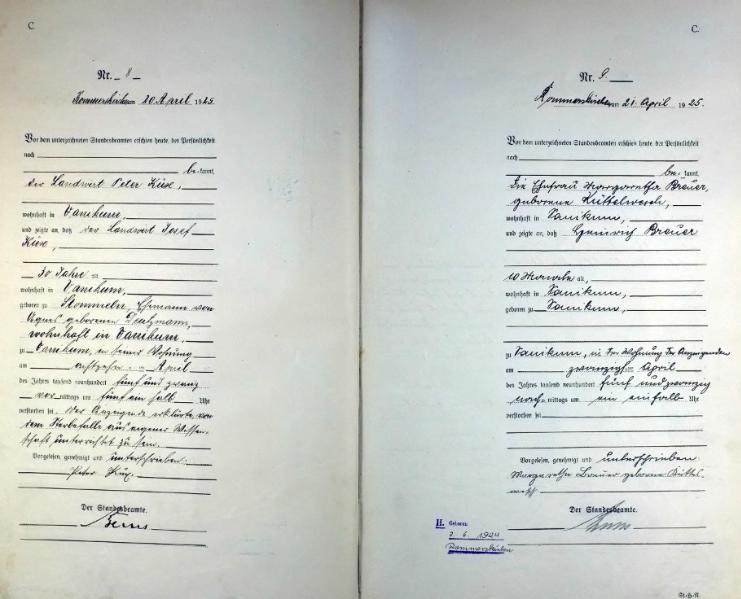 C.
Nr. 8
Rommerskirchen 20 April 1925
Vor dem unterzeichneten Standesbeamten erschien heute, der Persönlichkeit
nach
be-kannt,
der Landwirt Peter
wohnhaft in Vanikum,
und zeigte an, daß der Landwirt Josef
30 Jahre
wohnhaft in Vanikum,
geboren zu Stommeln, Ehemann von
Agnes geborenen
wohnhaft in Vanikum,
zu Vanikum, in seiner Wohnung
am achtzehn - April
des Jahres tausend neunhundert fünf und zwanzig
vor mittags um fünf ein halb Uhr
verstorben sei. Der Anzeigende erklärte von
dem Sterbefalle aus eigener Wissen-
schaft unterrichtet zu sein.
Vorgelesen, genehmigt und unterschrieben:
Peter
Der Standesbeamte.
C.
Nr. 9
Rommerskirchen am 21 April 1925.
Vor dem unterzeichneten Standesbeamten erschien heute, der Persönlichkeit
nach
be-kannt,
die Ehefrau Margaretha Breuer,
geborene
wohnhaft in Vanikum,
und zeigte an, daß Heinrich Breuer
10 Monate alt,
wohnhaft in Vanikum,
geboren zu Vanikum,
zu Vanikum, in der Wohnung der Anzeigenden
am zwanzigsten April
des Jahres tausend neunhundert fünf und zwanzig
nach-mittags um ein einhalb Uhr
verstorben sei
Vorgelesen, genehmigt und unterschrieben:
Margaretha Breuer geborene
Der Standesbeamte.
II. Geboren:
1924
Rommerskirchen